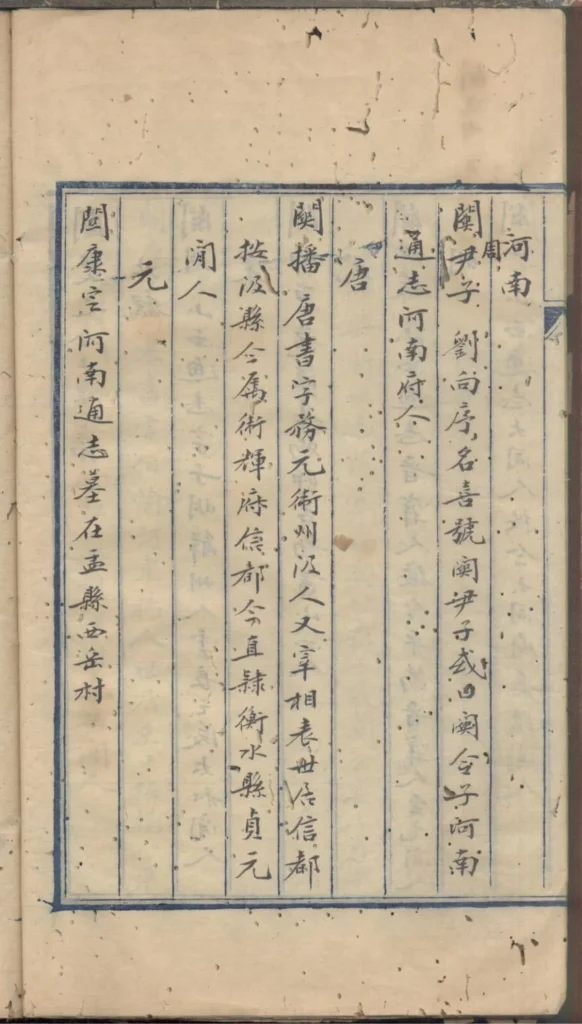 河南
周
關尹子 劉向序名喜號關尹子或曰關令子河南
通志河南府人
唐
關播 唐書字務元衛州汲人又宰相表世居信都
按汲縣今屬衛輝府信都今直隸衡水縣貞元
閒人
元
關康宁河南通志墓在孟縣西岳村